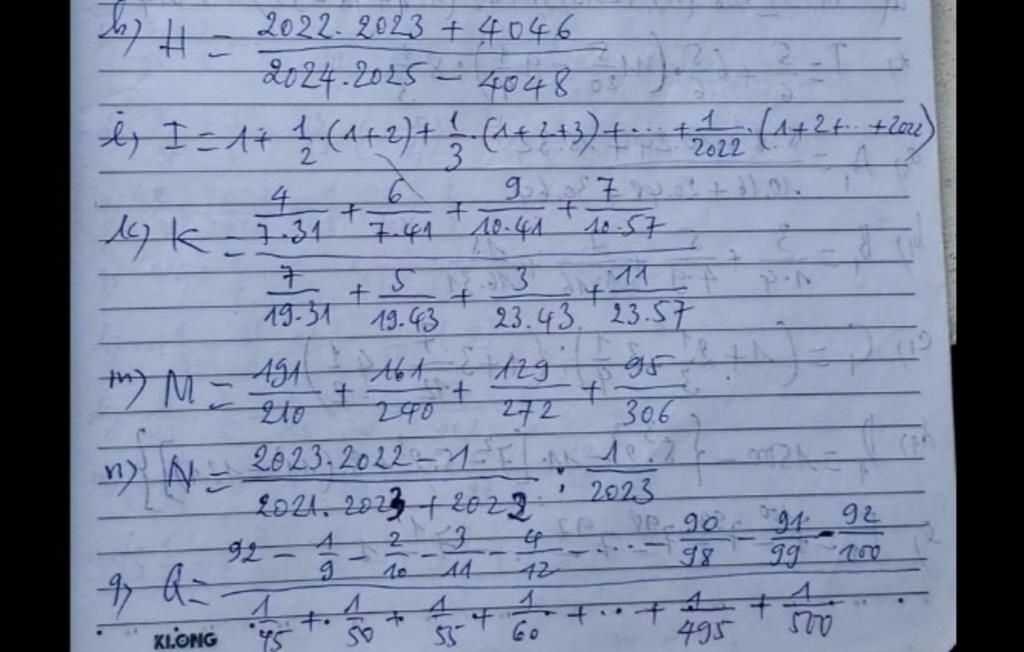 h) H = (2022.2023 + 4046) / (2024.2025 - 4048)
i) I = 1 + 1/2.(1+2) + 1/3.(1+2+3) + ... + 1/2022.(1+2+...+2022)
k) K = (4/7.31 + 6/7.41 + 9/10.41 + 7/10.57) / (7/19.31 + 5/19.43 + 3/23.43 + 11/23.57)
m) M = 191/210 + 161/240 + 129/272 + 95/306
n) N = (2023.2022 - 1) / (2021.2023 + 2022) : 1/2023
q) Q = (92 - 1/9 - 2/10 - 3/11 - 4/12 - ... - 90/98 - 91/99 - 92/100) / (1/45 + 1/50 + 1/55 + 1/60 + ... + 1/495 + 1/500)
KLONG